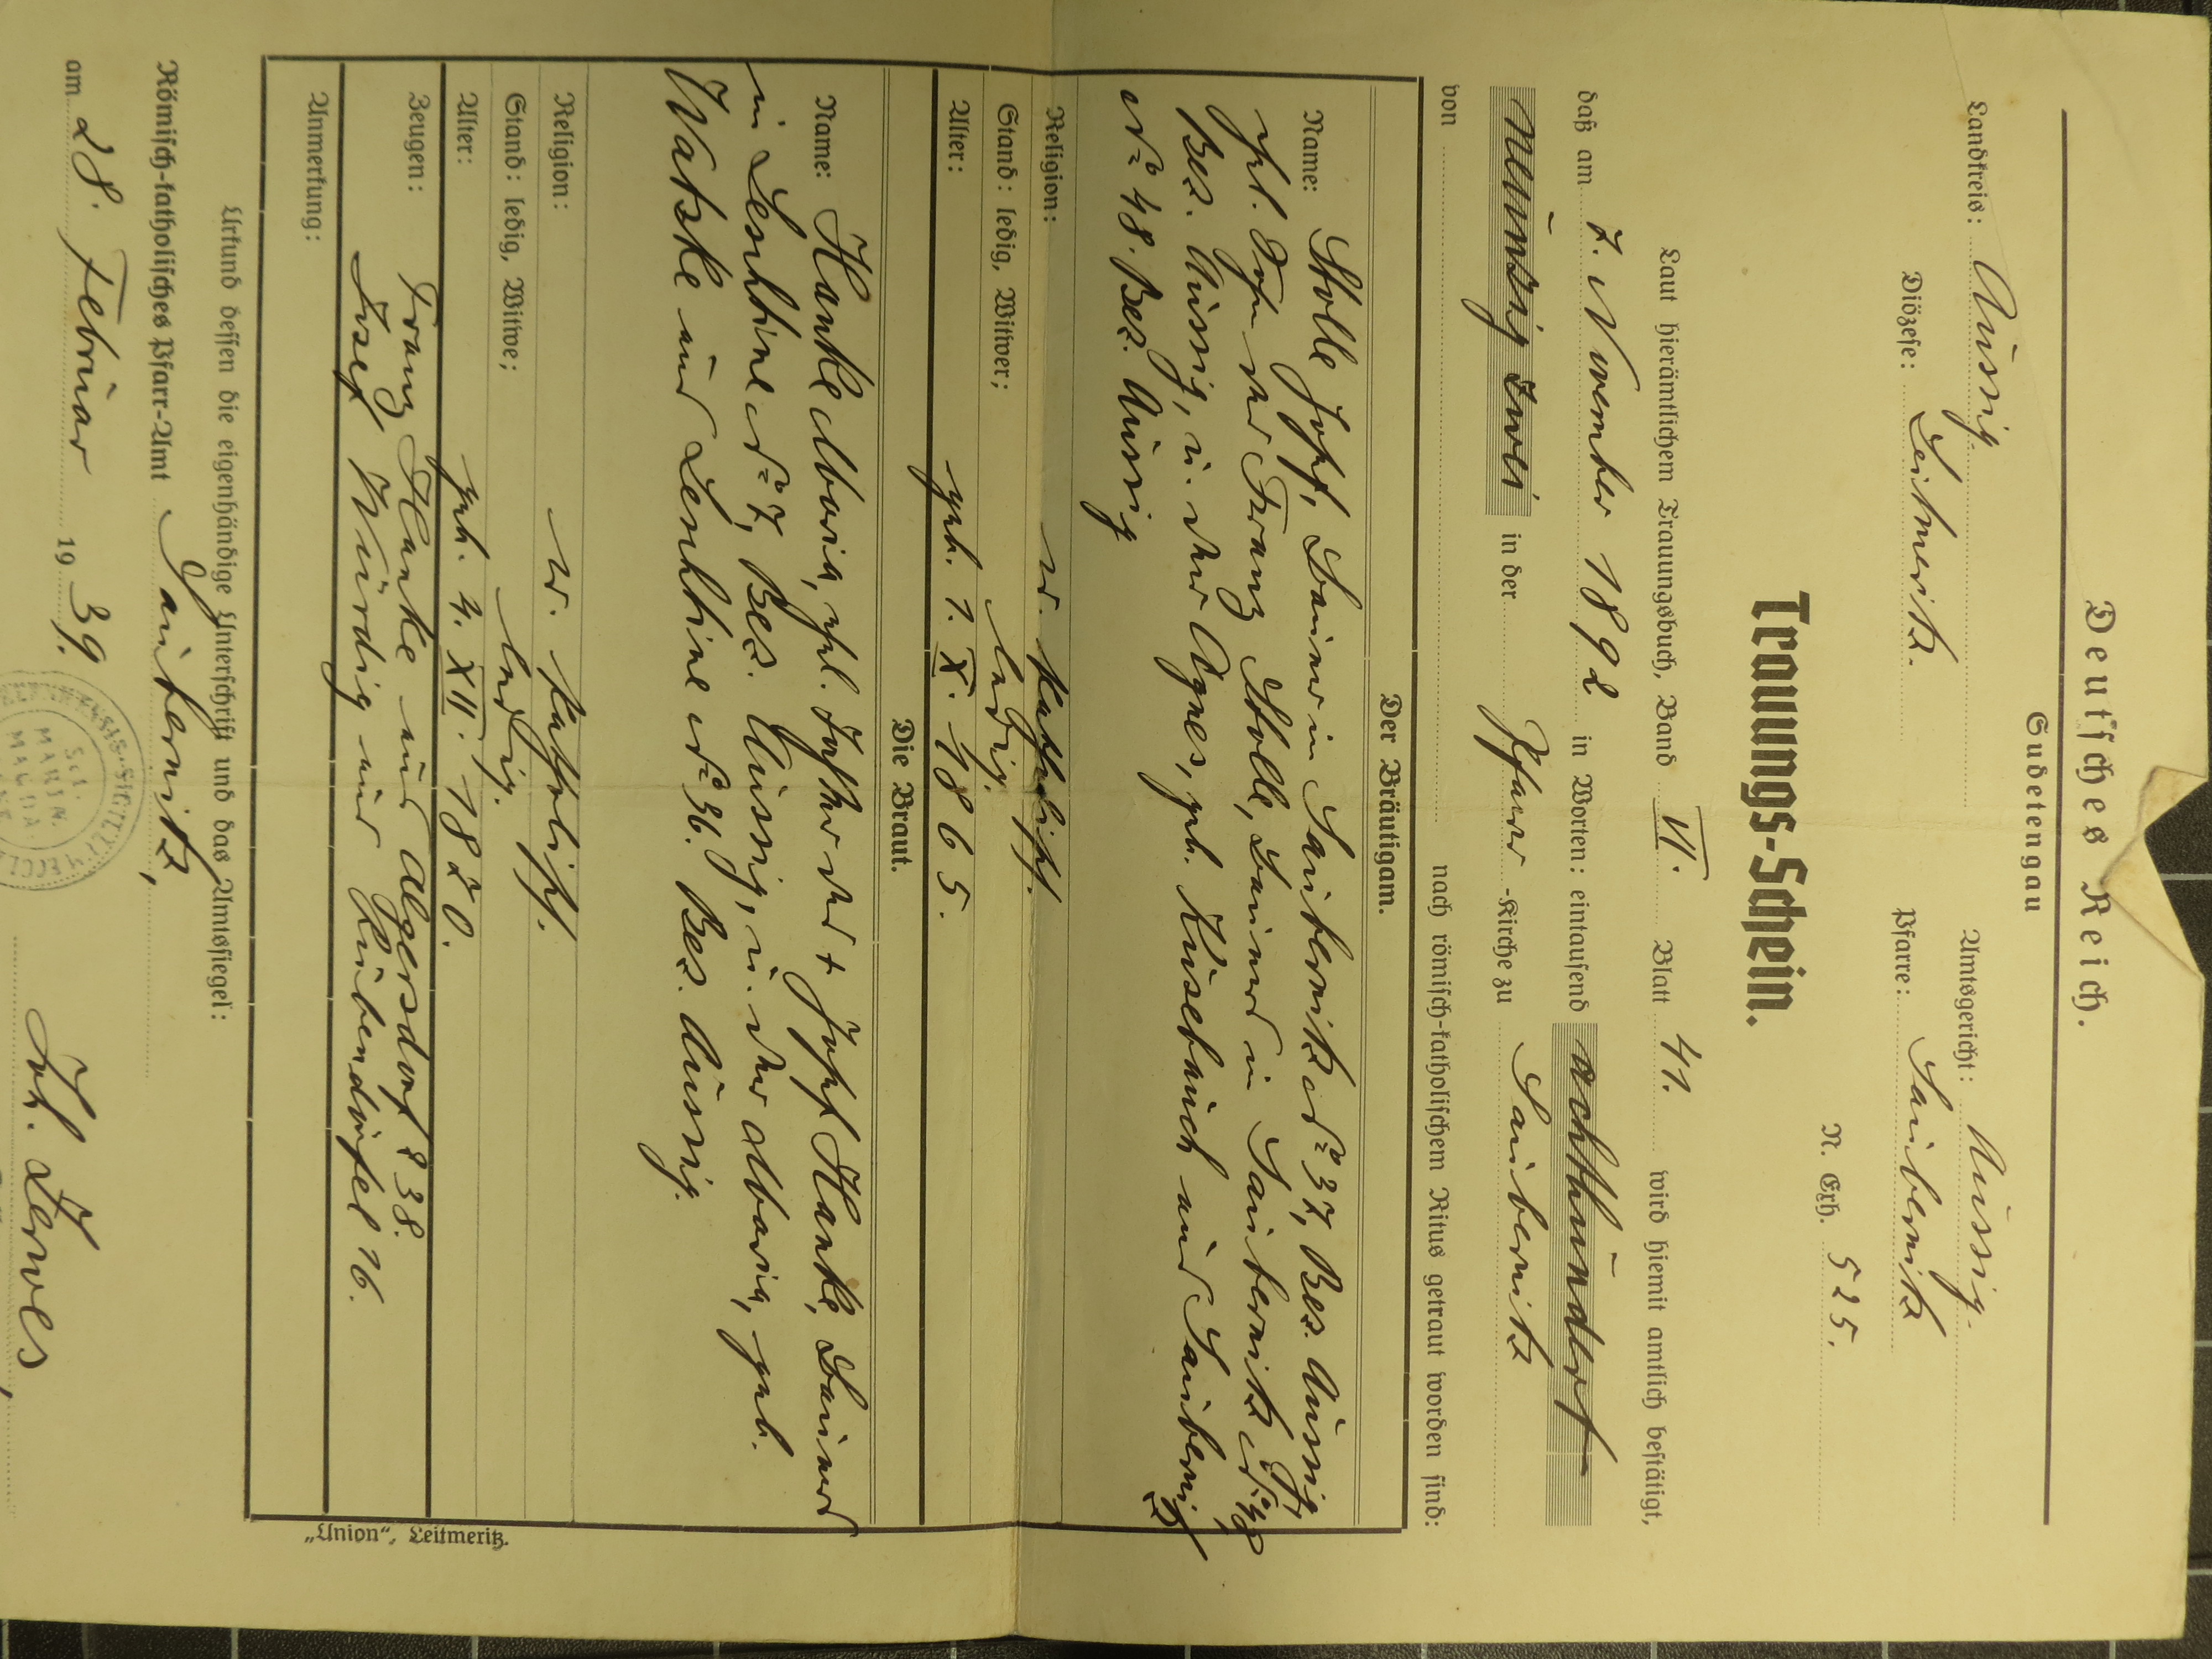 Deutsches Reich.
Sudetengau
Landkreis: Aussig. Amtsgericht: Aussig.
Diözese: Leitmeritz. Pfarre: Saubernitz
N. Exh. 525.
Trauungs-Schein.
Laut hierämtlichem Trauungsbuch, Band VI. Blatt 41. wird hiemit amtlich bestätigt,
daß am 7. November 1892 in Worten: eintausend achthundert
neunzig zwei in der Pfarr -Kirche zu Saubernitz
von nach römisch-katholischem Ritus getraut worden sind:
Der Bräutigam.
Name: Stolle Josef, Bauer in Saubernitz No 37, Bez. Aussig,
ehel. Sohn des Franz Stolle, Bauers in Saubernitz No 48,
Bez. Aussig, u. der Agnes, geb. Kusebauch aus Saubernitz
No 48. Bez. Aussig
Religion: r. katholisch.
Stand: ledig, Witwer; ledig.
Alter: geb. 1. X. 1865.
Die Braut.
Name: Hanke Maria, ehel. Tochter des + Josef Hanke, Bauers
in Leschtine No 7, Bez. Aussig, u. der Maria, geb.
Watzke aus Leschtine No 36. Bez. Aussig.
Religion: r. katholisch.
Stand: ledig, Witwe; ledig.
Alter: geb. 4. XII. 1870.
Zeugen: Franz Hanke aus Algersdorf 38.
Josef Würdig aus Rübendörfel 16.
Anmerkung:
„Union“, Leitmeritz.
Urkund dessen die eigenhändige Unterschrift und das Amtssiegel:
Römisch-katholisches Pfarr-Amt Saubernitz,
am 28. Februar 1939.
SIGILLUM ECCL
Sct.
MARIÆ
MAGDA
Joh. Zerwes,